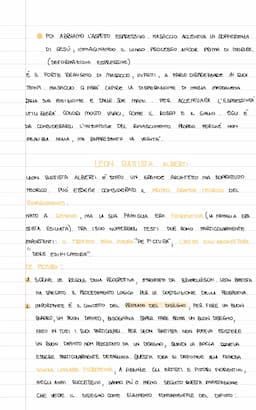 POI ABBIAMO L'ASPETTO ESPRESSIVO. MASACCIO ACCENTUA LA SOFFERENZA
DI GESÙ, IMMAGINANDO IL LUNGO PROCESSO ANCOR PRIMA DI MORIRE.
(DEFORMAZIONE ESPRESSIVA)
È IL FORTE REALISMO DI MASACCIO, INFATTI, A FARLO DISPREZZARE AI SUOI
TEMPI. MASACCIO CAPIRE LA DISPERAZIONE DI MARIA MADDALENA
DALLA SUA POSIZIONE E DALLE SUE MANI... PER ACCENTUARE L'ESPRESSIVITÀ
UTILIZZERÀ COLORI MOLTO VIVACI, COME IL ROSSO E IL GIALLO. EGLI È
DA CONSIDERARSI L'INIZIATORE DEL RINASCIMENTO PROPRIO PERCHÉ NON
NULLA, MA RAPPRESENTA LA VERITÀ.
LEON BATTISTA ALBERTI
LEON BATTISTA ALBERTI È STATO UN GRANDE ARCHITETTO MA SOPRATTUTTO
TEORICO. PUÒ ESSERE CONSIDERATO IL PRIMO GRANDE TEORICO DEL
RINASCIMENTO.
NATO A GENOVA, MA LA SUA FAMIGLIA ERA FIORENTINA (LA FAMIGLIA ERA
STATA ESILIATA). TRA I SUOI NUMEROSI TESTI DUE SONO PARTICOLARMENTE
IMPORTANTI: IL TRATTATO SULLA PITTURA "DE PICTURA", L'ALTRO SULL'ARCHITETTURA
"DE RE EDIFICATORIA".
DE PICTURA:
SEGUIRE LE REGOLE DELLA PROSPETTIVA, PARTENDO DA BRUNELLESCHI. LEON BATTISTA
HA SPIEGATO IL PROCEDIMENTO LUNGO PER LA COSTRUZIONE DELLA PROSPETTIVA.
IMPORTANTE È IL CONCETTO DEL PRIMATO DEL DISEGNO, PER FARE UN BUON
QUADRO, UN BUON DIPINTO, BISOGNAVA SAPER FARE PRIMA UN BUON DISEGNO,
FINITO IN TUTTI I SUOI PARTICOLARI. PER LEON BATTISTA NON POTEVA ESISTERE
UN BUON DIPINTO NON PRECEDUTO DA UN DISEGNO, QUINDI LA BOZZA DOVEVA
ESSERE PARTICOLARMENTE DETTAGLIATA. QUESTA IDEA SI DIFFONDE ALLA FAMOSA
SCUOLA FIORENTINA, A FIRENZE. GLI ARTISTI E PITTORI FIORENTINI,
NEGLI ANNI SUCCESSIVI, HANNO PIÙ O MENO SEGUITO QUESTA IMPOSTAZIONE
CHE VEDE IL DISEGNO COME ELEMENTO FONDAMENTALE DEL DIPINTO.